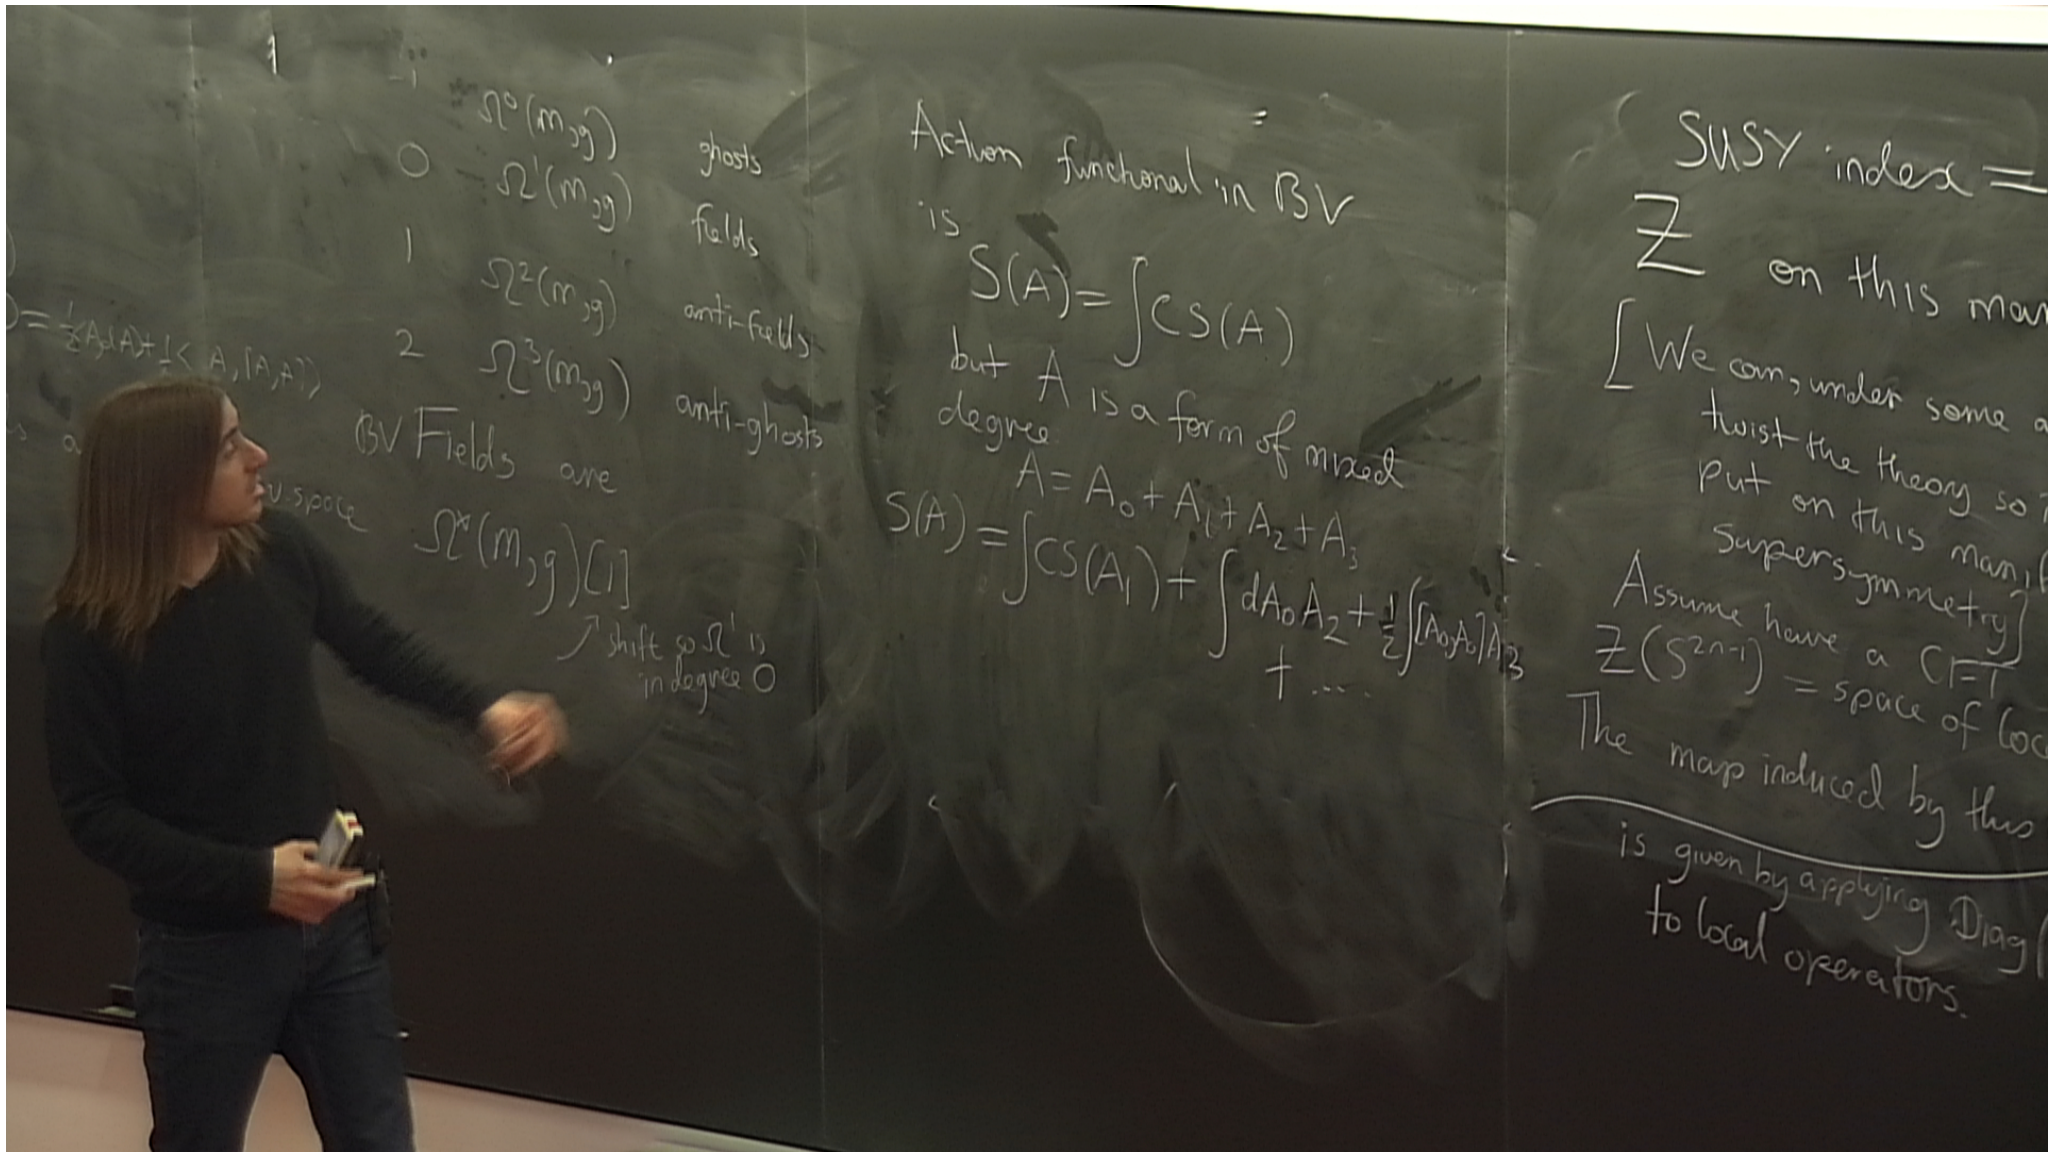 -1 Ω⁰(M, g) ghosts
0 Ω¹(M, g) fields
1 Ω²(M, g) anti-fields
2 Ω³(M, g) anti-ghosts
) = ½⟨A, dA⟩ + ⟨A, [A, A]⟩
BV Fields are
Ω*(M, g)[1]
shift so Ω¹ is
in degree 0
Action functional in BV
is
S(A) = ∫CS(A)
but A is a form of mixed
degree
A = A₀ + A₁ + A₂ + A₃
S(A) = ∫CS(A₁) + ∫dA₀A₂ + ½∫[A₀, A₀]A₃
+ ....
SUSY index =
Z on this man
[We can, under some a
twist the theory so
put on this manif
supersymmetry]
Assume have a CFT
Z(S²ⁿ⁻¹) = space of loc
The map induced by this
is given by applying Diag(
to local operators.